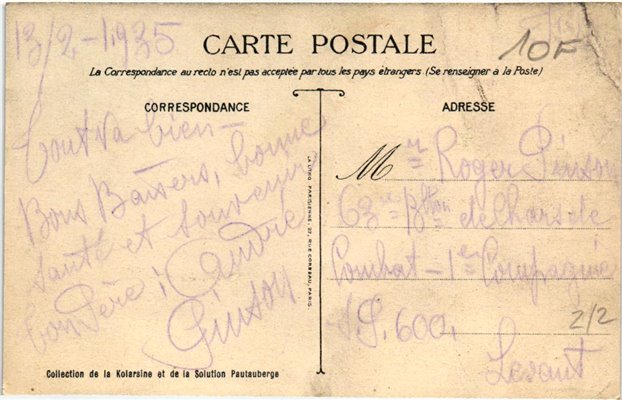 13/2-1935
10F
CARTE POSTALE
La Correspondance au recto n'est pas acceptée par tous les pays étrangers (Se renseigner à la Poste)
CORRESPONDANCE
Tout va bien -
Bons Baisers, bonne
santé et souvenir
ton Père; André
Pinson
LA LITHO PARISIENNE, 27, RUE CORBEAU, PARIS
ADRESSE
Mr Roger Pinson
63me Btton de chars de
Combat - 1ère Compagnie
S.P. 600,
2/2
Levant
Collection de la Kolarsine et de la Solution Pautauberge